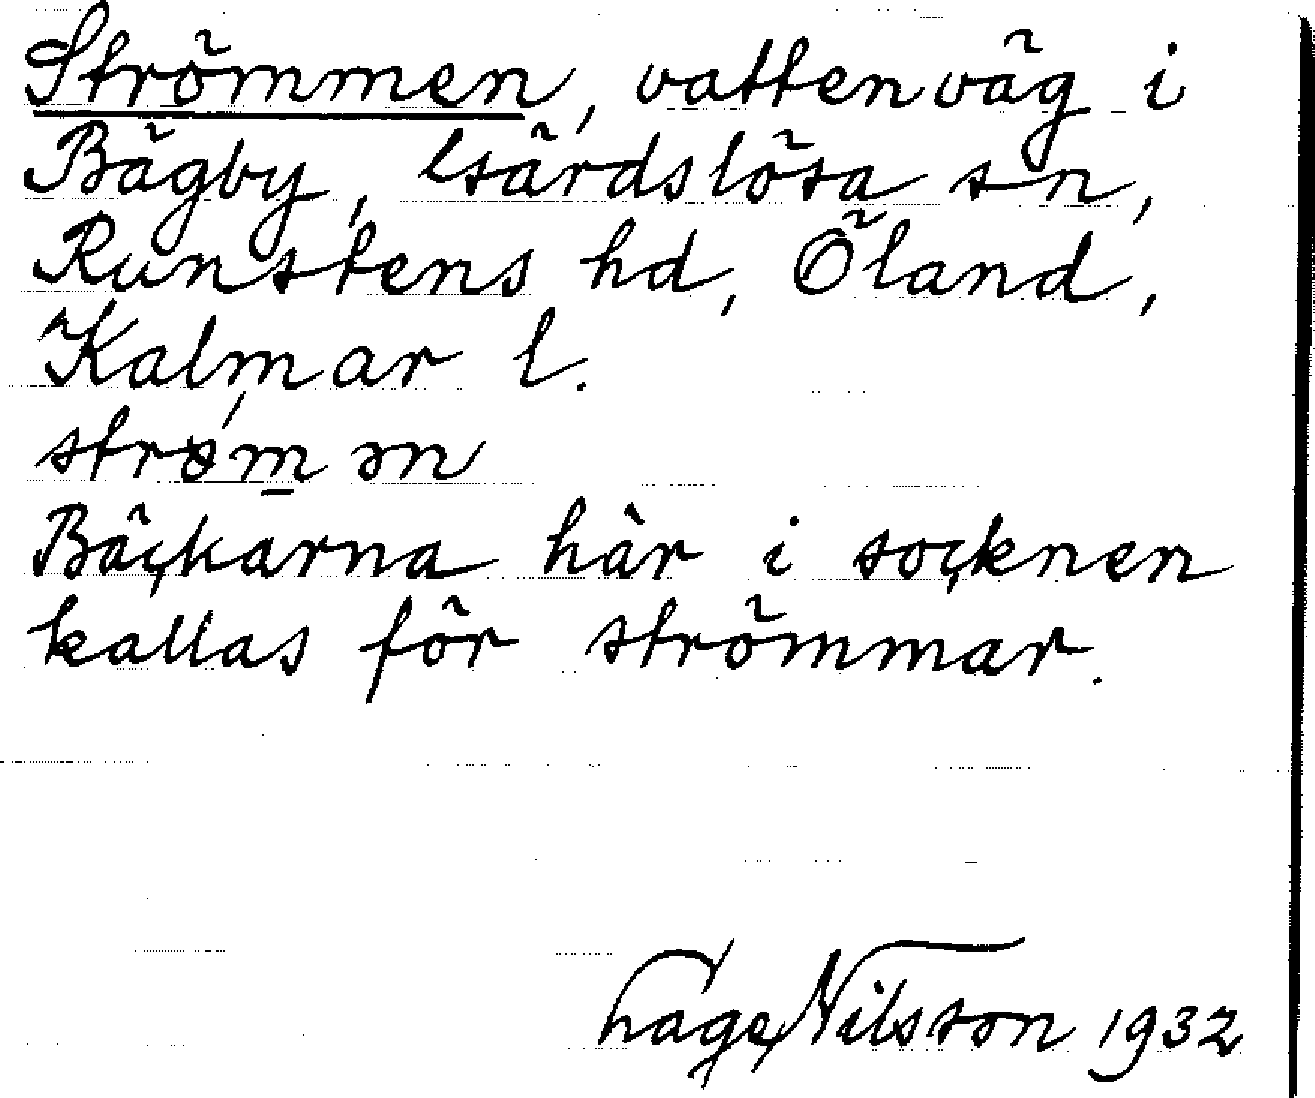 Strömmen, vattenväg i
Bägby, Gärdslösa sn,
Runstens hd, Öland,
Kalmar l.
Bäckarna här i socknen
kallas för strömmar.
Hage Nilsson 1932